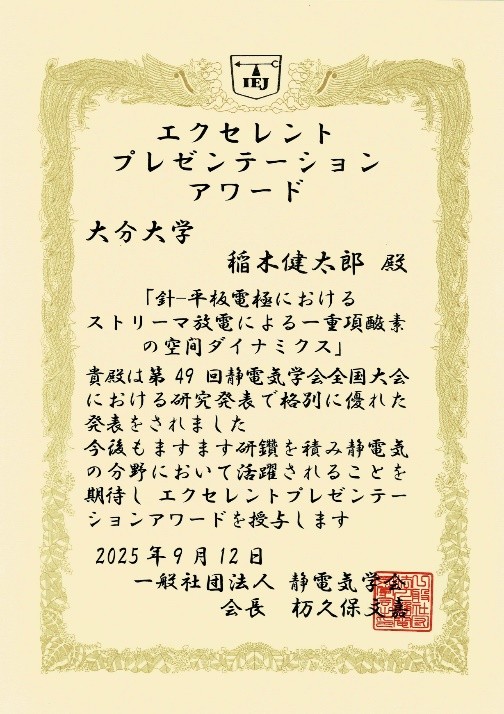 IEJ
エクセレント
プレゼンテーション
アワード
大分大学
稲木健太郎 殿
「針−平板電極における
ストリーマ放電による一重項酸素
の空間ダイナミクス」
貴殿は第 49 回静電気学会全国大会
における研究発表で格別に優れた
発表をされました
今後もますます研鑽を積み静電気
の分野において活躍されることを
期待し エクセレントプレゼンテー
ションアワードを授与します
2025年9月12日
一般社団法人 静電気学会
会長 杤久保文嘉